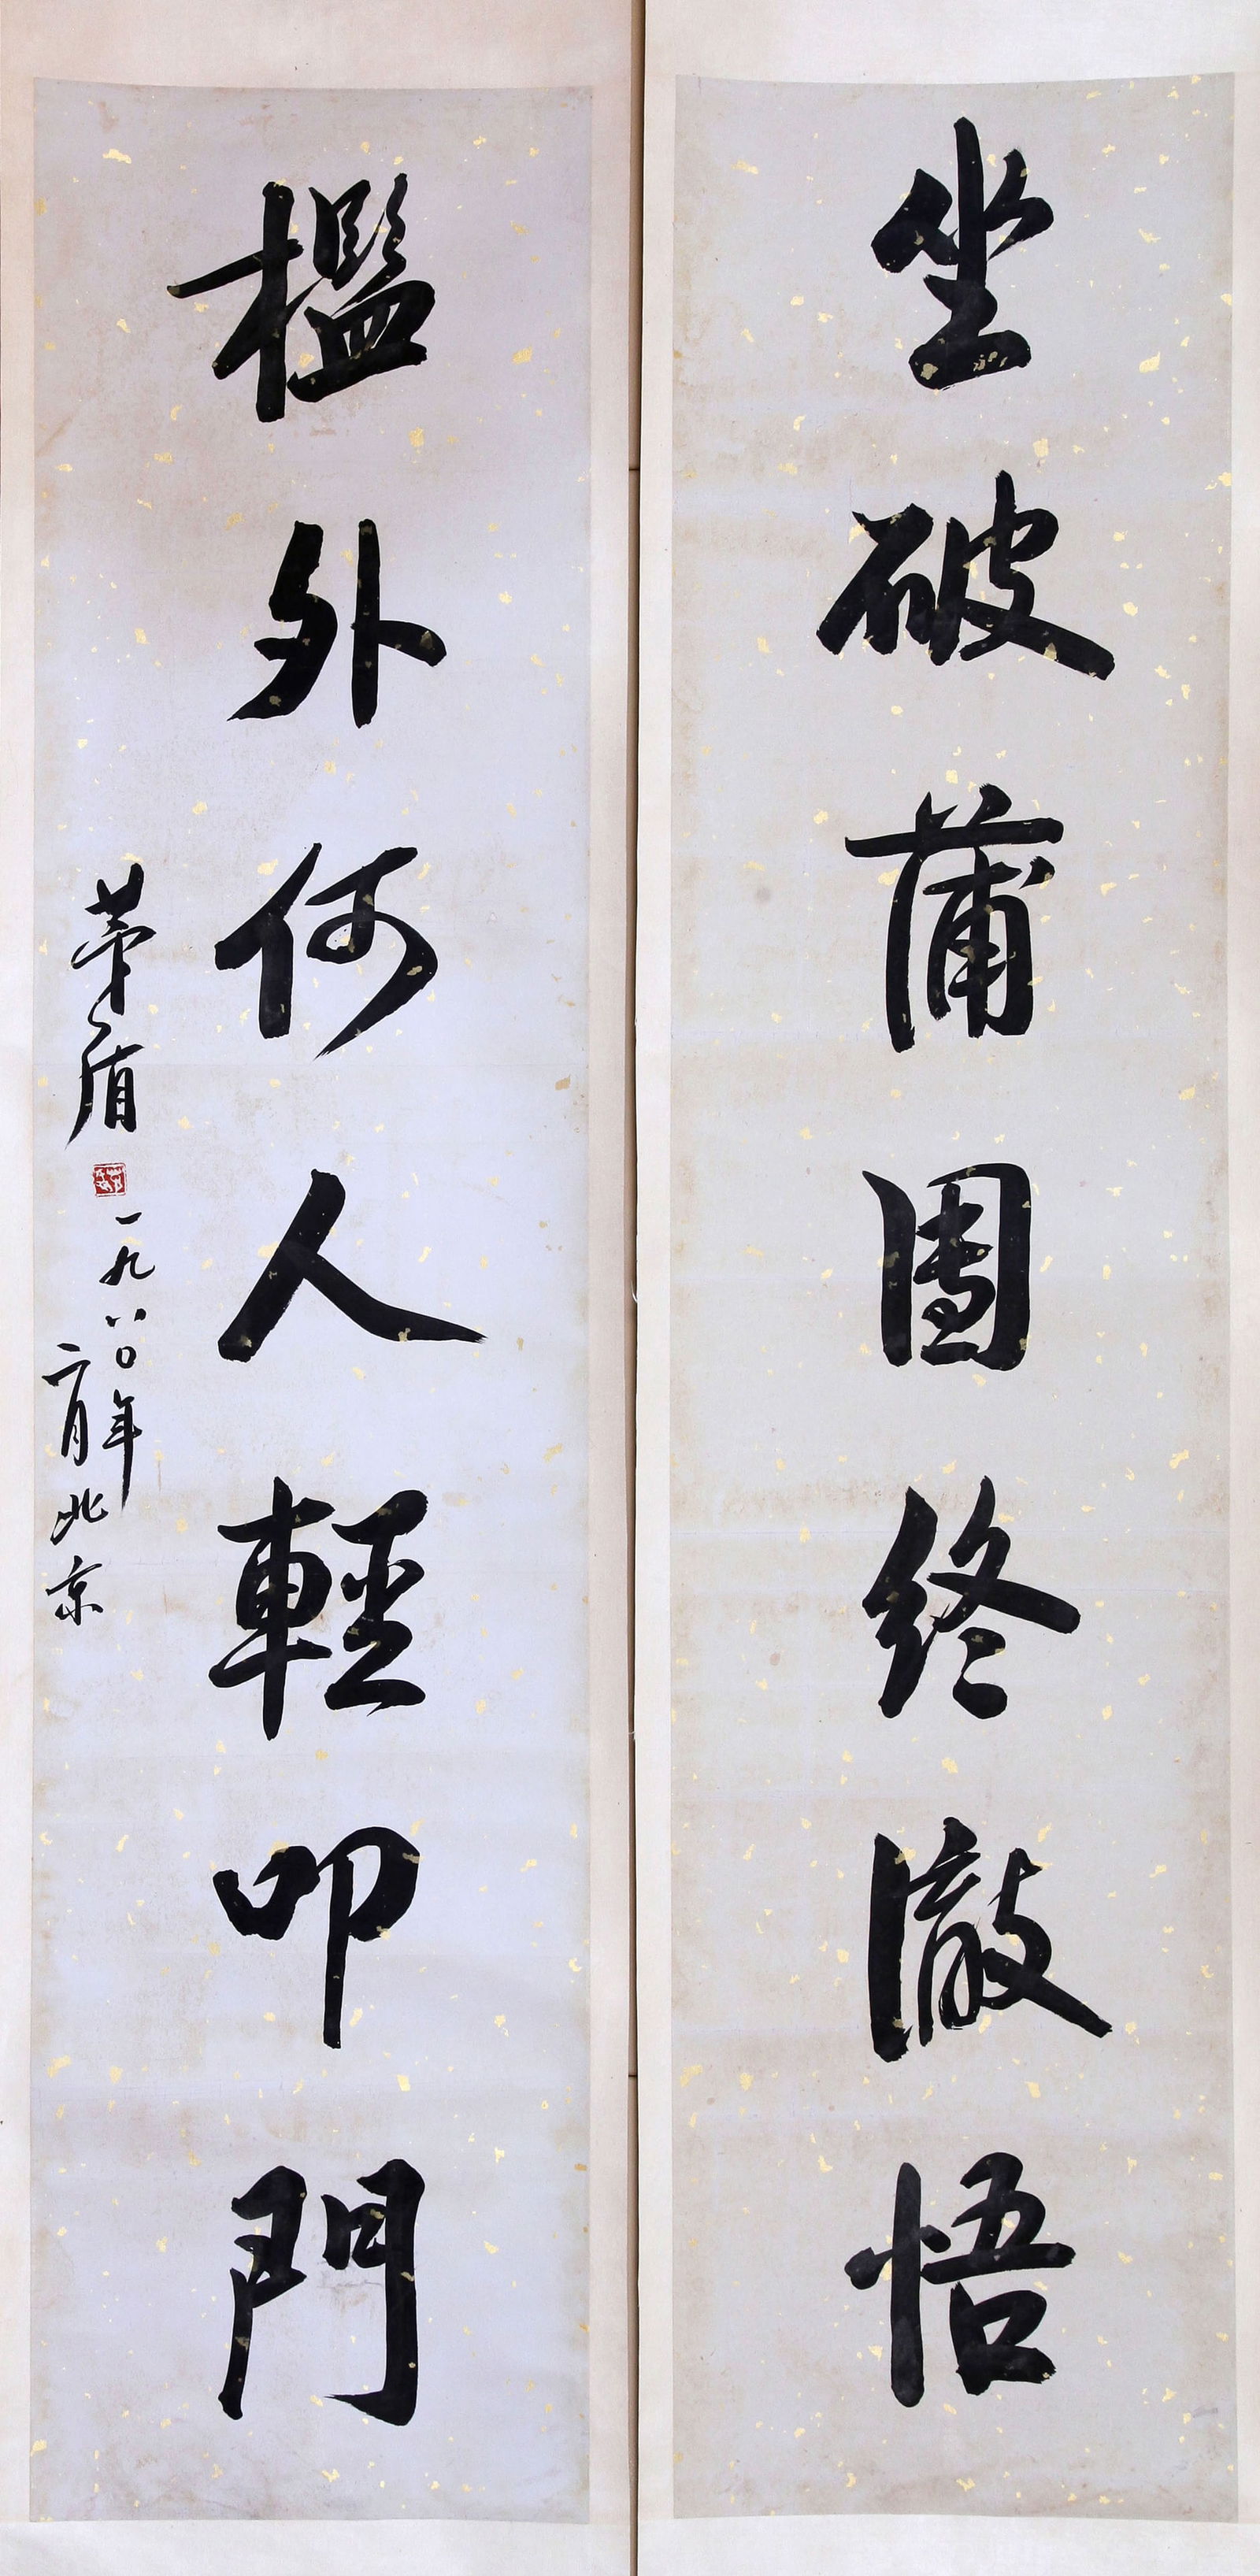 坐破蒲團终澈悟
檻外何人輕叩門
茅盾
一九八〇年
二月北京